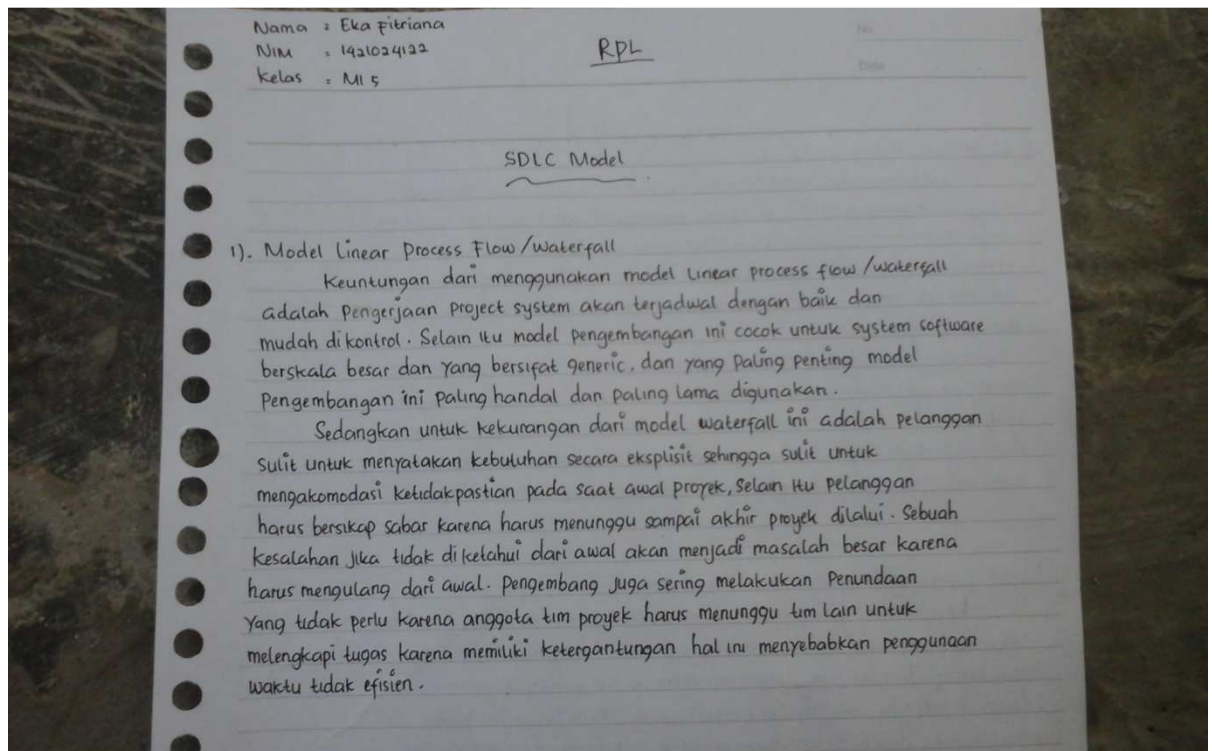 Nama : Eka Fitriana
NIM : 1421024122
Kelas : MI 5
RPL
No
Date
SDLC Model
1). Model Linear Process Flow/Waterfall
Keuntungan dari menggunakan model linear process flow/waterfall
adalah pengerjaan project system akan terjadwal dengan baik dan
mudah dikontrol. Selain itu model pengembangan ini cocok untuk system software
berskala besar dan yang bersifat generic, dan yang paling penting model
pengembangan ini paling handal dan paling lama digunakan.
Sedangkan untuk kekurangan dari model waterfall ini adalah pelanggan
sulit untuk menyatakan kebutuhan secara eksplisit sehingga sulit untuk
mengakomodasi ketidakpastian pada saat awal proyek, selain itu pelanggan
harus bersikap sabar karena harus menunggu sampai akhir proyek dilalui. Sebuah
kesalahan jika tidak diketahui dari awal akan menjadi masalah besar karena
harus mengulang dari awal. Pengembang juga sering melakukan penundaan
yang tidak perlu karena anggota tim proyek harus menunggu tim lain untuk
melengkapi tugas karena memiliki ketergantungan hal ini menyebabkan penggunaan
waktu tidak efisien.